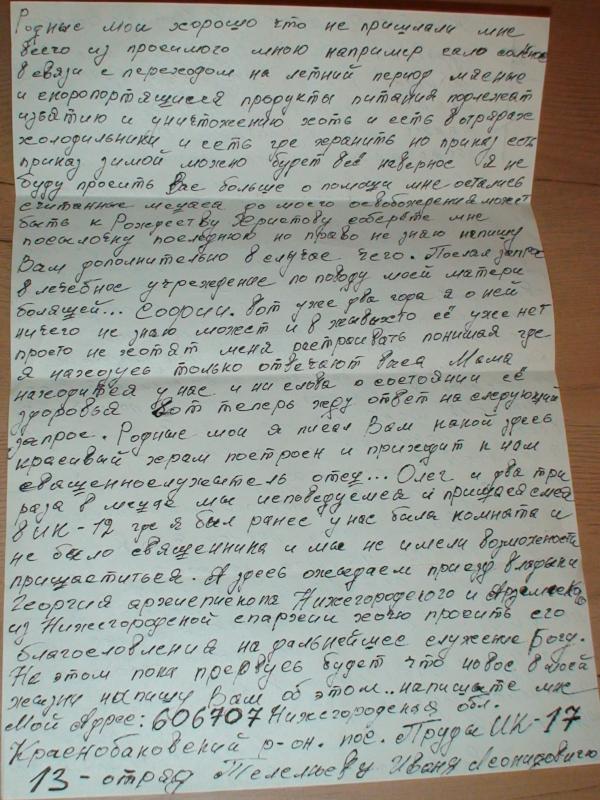 Родные мои хорошо что не пришлали мне
всего из просимого мною например сало солёное
в связи с переходом на летний период мясные
и скоропортящиеся продукты питания подлежат
изъятию и уничтожению хоть и есть в отрядах
холодильники и есть где хранить но приказ есть
приказ зимой можно будет всё наверное я не
буду просить Вас больше о помощи мне остались
считанные месяса до моего освобождения может
быть к Рождеству Христову соберёте мне
посылочку последнюю но право не знаю напишу
Вам дополнительно в случае чего. Послал запрос
в лечебное учреждение по поводу моей матери
болящей... Софии. Вот уже два года я о ней
ничего не знаю может и в живых то её уже нет
просто не хотят меня растраивать понимая где
я нахожусь только отвечают Ваша Мама
находится у нас и ни слова о состоянии её
здоровья Вот теперь жду ответ на следующий
запрос. Родные мои я писал Вам какой здесь
красивый храм построен и приходит к нам
священнослужитель отец... Олег и два три
раза в месяц мы исповедуемся и причащаемся
в ИК-12 где я был ранее у нас была комната и
не было священника и мы не имели возможности
прищаститься. А здесь ожидаем приезд владыки
Георгия архиепископа Нижегородского и Арзамаского
из Нижегородской епархии хочу просить его
благословления на дальнейшее служение Богу.
На этом пока прервусь будет что новое в моей
жизни напишу Вам об этом.. напишите мне
Мой Адрес: 606707 Нижегородская обл.
Краснобаковский р-он. пос. Пруды ИК-17
13-отряд Ивану Леонидовичу